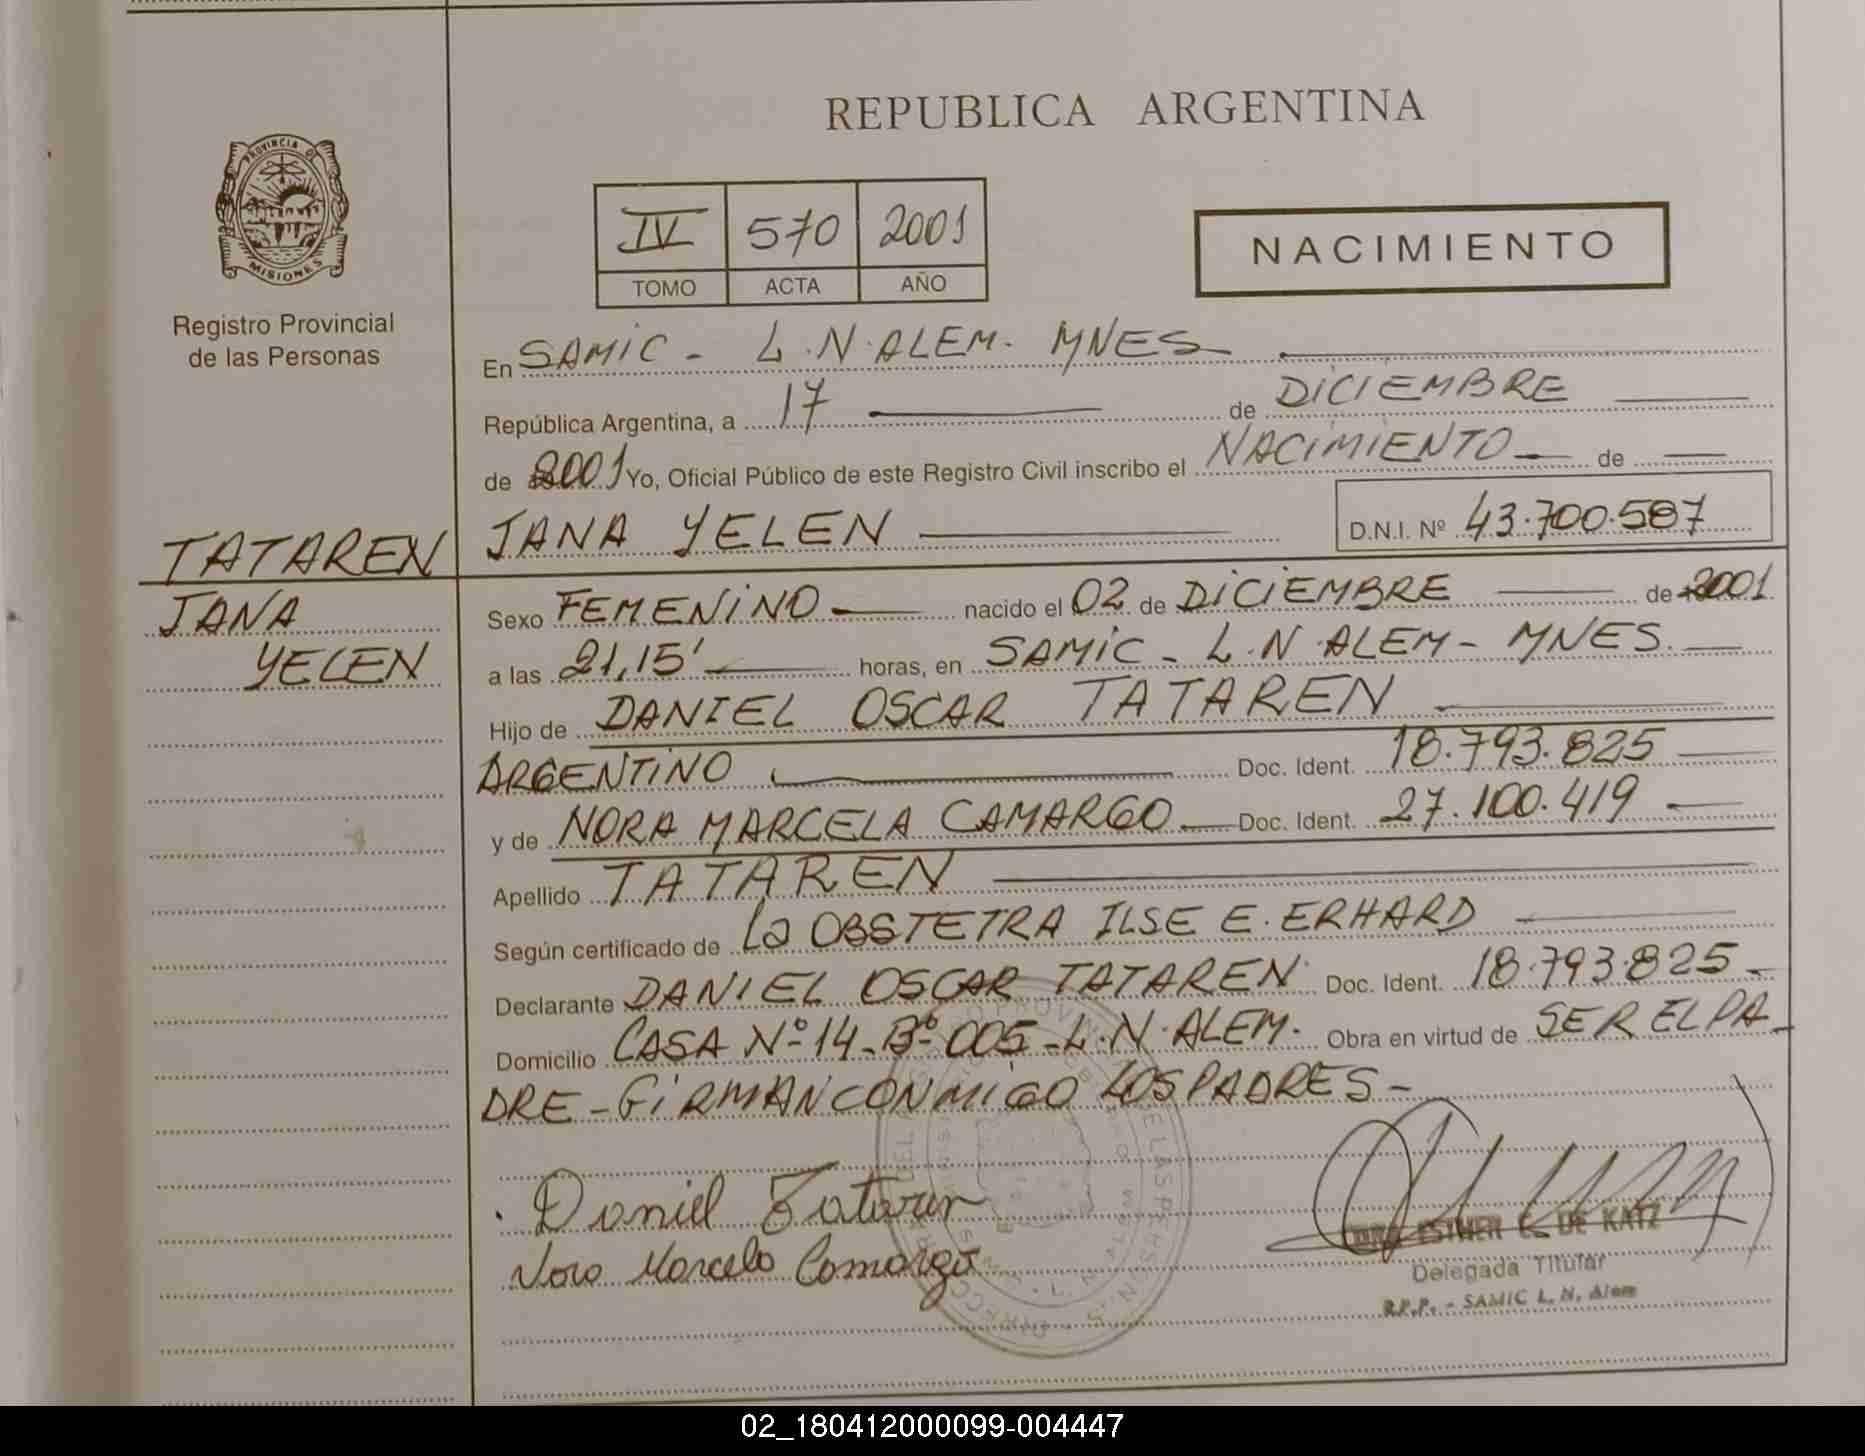 REPUBLICA ARGENTINA
PROVINCIA DE
MISIONES
Registro Provincial
de las Personas
IV 570 2001
TOMO ACTA AÑO
NACIMIENTO
En SAMIC - L.N.ALEM. MNES
República Argentina, a 17 de DICIEMBRE
de 2001 Yo, Oficial Público de este Registro Civil inscribo el NACIMIENTO de
JANA YELEN D.N.I. Nº 43.700.587
TATAREN
JANA
YELEN
Sexo FEMENINO nacido el 02 de DICIEMBRE de 2001
a las 21,15' horas, en SAMIC - L.N.ALEM - MNES.
Hijo de DANIEL OSCAR TATAREN
ARGENTINO Doc. Ident. 18.793.825
y de NORA MARCELA CAMARGO Doc. Ident. 27.100.419
Apellido TATAREN
Según certificado de La OBSTETRA ILSE E. ERHARD
Declarante DANIEL OSCAR TATAREN Doc. Ident. 18.793.825
Domicilio CASA Nº 14 - Bº 005 - L.N.ALEM. Obra en virtud de SER EL PA-
DRE - FIRMAN CONMIGO LOS PADRES -
Daniel Tataren
Nora Marcela Camargo
ESTHER E. DE KATZ
Delegada Titular
R.P.P. - SAMIC L. N. Alem
02_180412000099-004447